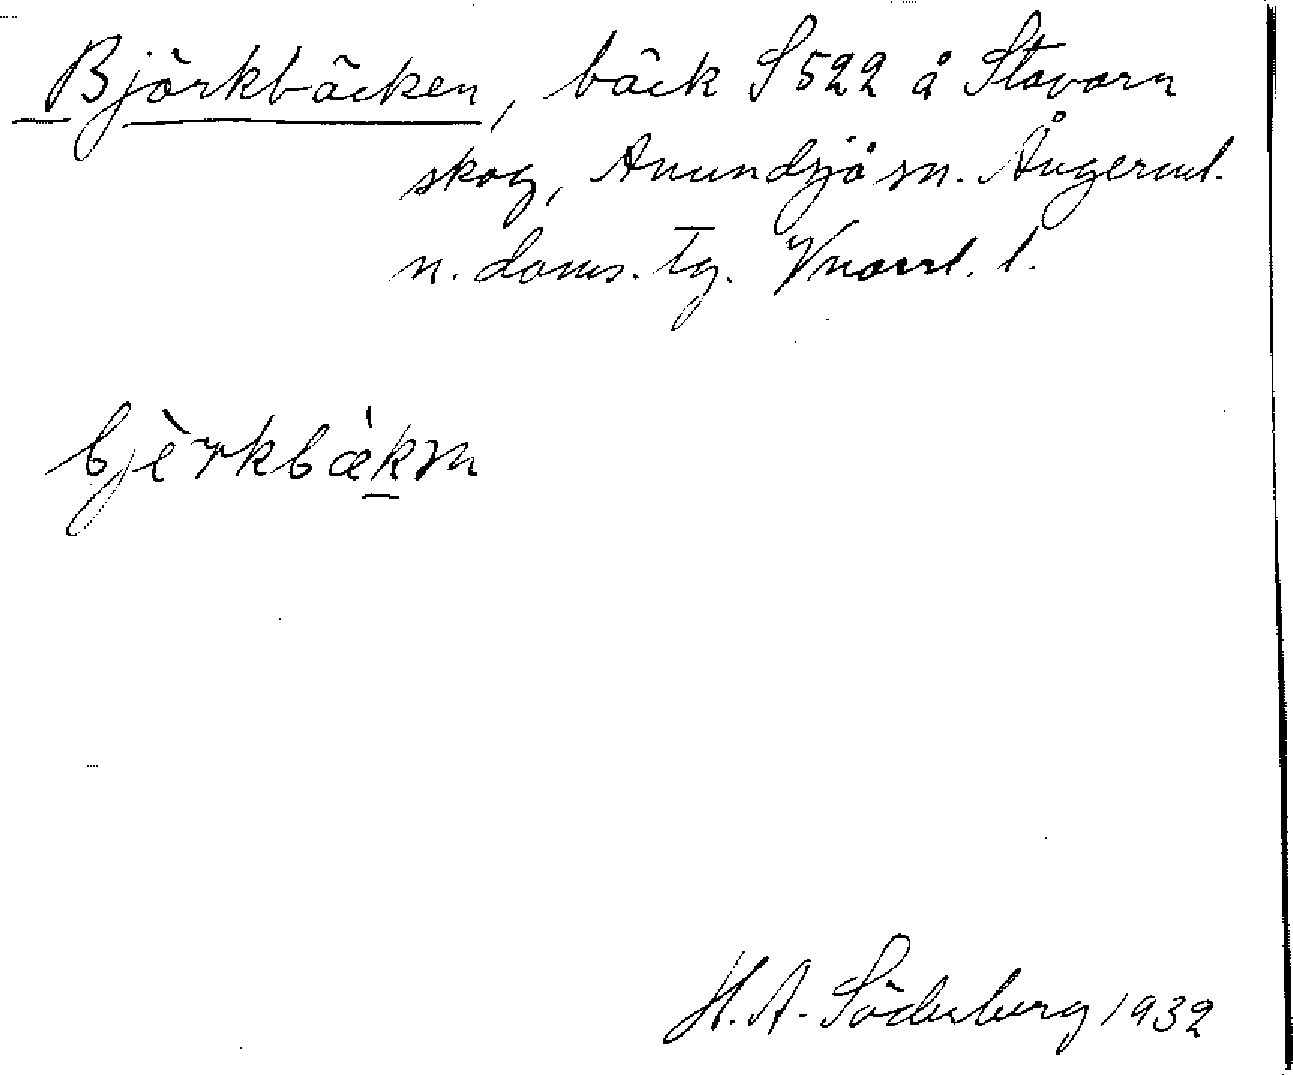 Björkbäcken, bäck S 522 å Stavarn
skog, Anundsjö sn. Ångerml.
n. doms. tg. Vnorrl. l.
bjèrkbækm
H. A. Söderberg 1932